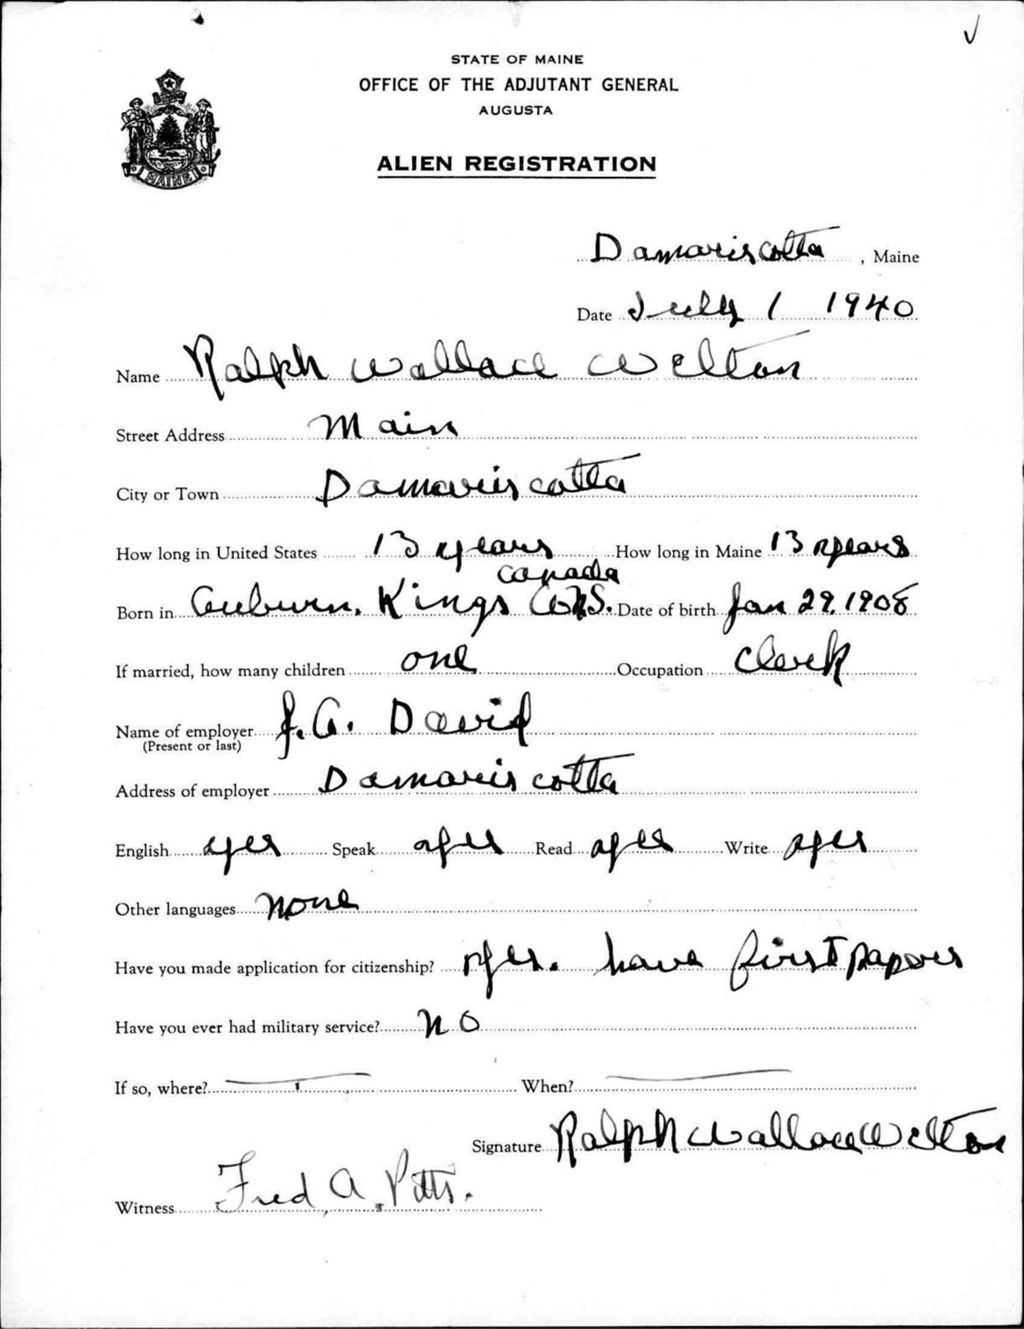 STATE OF MAINE
OFFICE OF THE ADJUTANT GENERAL
AUGUSTA
MAINE
ALIEN REGISTRATION
Damariscotta, Maine
Date July 1 1940
Name Ralph Wallace Welton
Street Address Main
City or Town Damariscotta
How long in United States 13 years How long in Maine 13 years
Canada
Born in Auburn. Kings Co N.S. Date of birth Jan 29, 1908
If married, how many children one Occupation Clerk
Name of employer J. A. David
(Present or last)
Address of employer Damariscotta
English yes Speak yes Read yes Write yes
Other languages none
Have you made application for citizenship? yes. have first papers
Have you ever had military service? no
If so, where? When?
Signature Ralph Wallace Welton
Witness Fred A. Pitts.